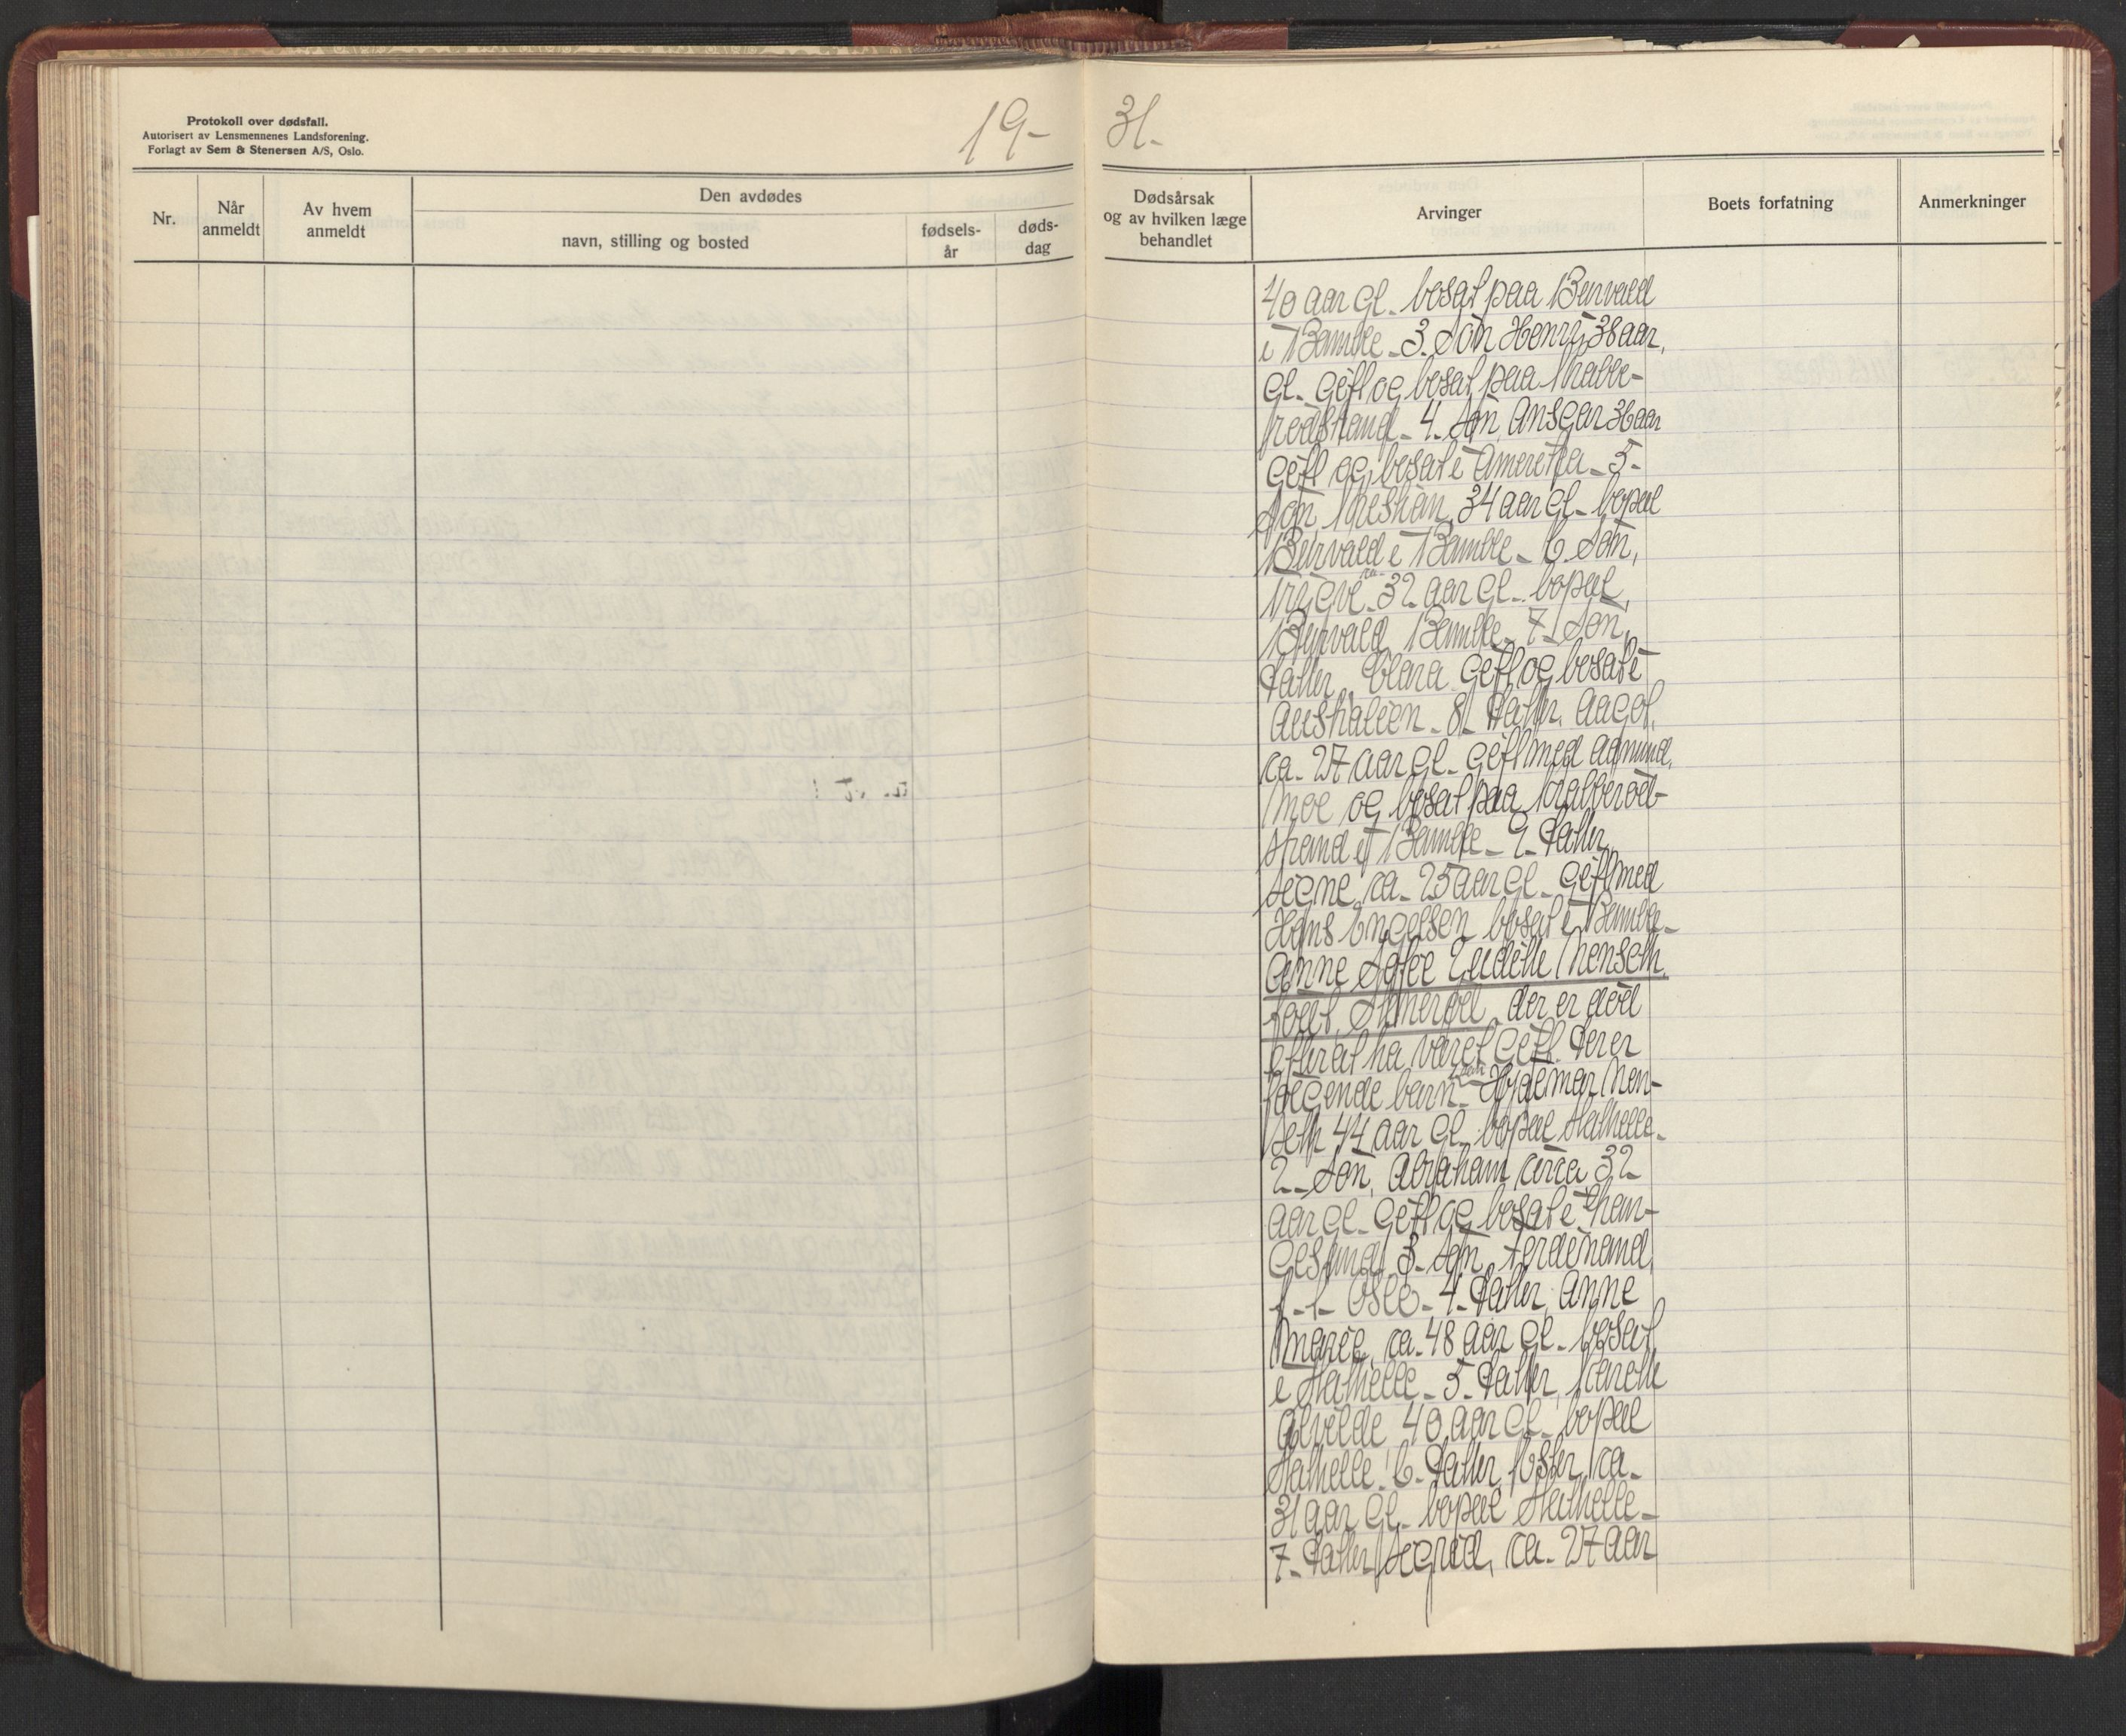 Protokoll over dødsfall.
Autorisert av Lensmennenes Landsforening.
Forlagt av Sem & Stenersen A/S, Oslo.
19- 31-
Nr.
Når anmeldt
Av hvem anmeldt
Den avdødes
navn, stilling og bosted
fødsels-år
døds-dag
Dødsårsak og av hvilken læge behandlet
Arvinger
Boets forfatning
Anmerkninger
40 aar gl. bosat paa
i Bamble - 3. Søn Henry, 38 aar
gl. gift og bosat paa
4. Søn, Ansgar 36 aar
gift og bosat i Amerika - 5-
Søn 34 aar gl. bopæl
i Bamble - 6. Søn,
32 aar gl. bopæl
Bamble - 7. Søn,
Datter, Clara gift og bosat i
Australien - 8. Datter, Aagot,
ca. 27 aar gl. gift med Aamund
Moe og bosat paa
strand i Bamble - 9. Datter,
Signe, ca. 25 aar gl. gift med
Hans Engelsen bosat i Bamble -
Anne Sofie
født der er død
efterat ha været gift. Derer
følgende barn - Hjalmar
44 aar gl. bopæl Stathelle -
2. Søn, Abraham, circa 32
aar gl. gift og bosat i Lan-
gesund 3. Søn, Ferdinand,
Oslo - 4. Datter, Anne
Marie, ca. 48 aar gl. bosat
i Stathelle - 5. Datter,
Alvilde 40 aar gl. bopæl
Stathelle. 6. Datter, Ester, ca.
31 aar gl. bopæl Stathelle -
7. Datter, Sigrid, ca. 27 aar